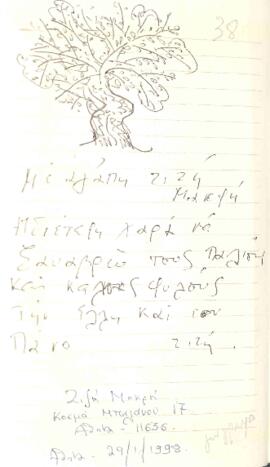 38
Με αγάπη Ζιζή
Μακρή
Ιδιέτερη χαρά να
ξαναβρώ τους παλιούς
και καλούς φίλους
Την Έλλη και τον
Πάνο Ζιζή.
Ζιζή Μακρή
Κοσμά Μπαλάνου 17
Αθήνα - 11636
Αθήνα - 29/1/1998